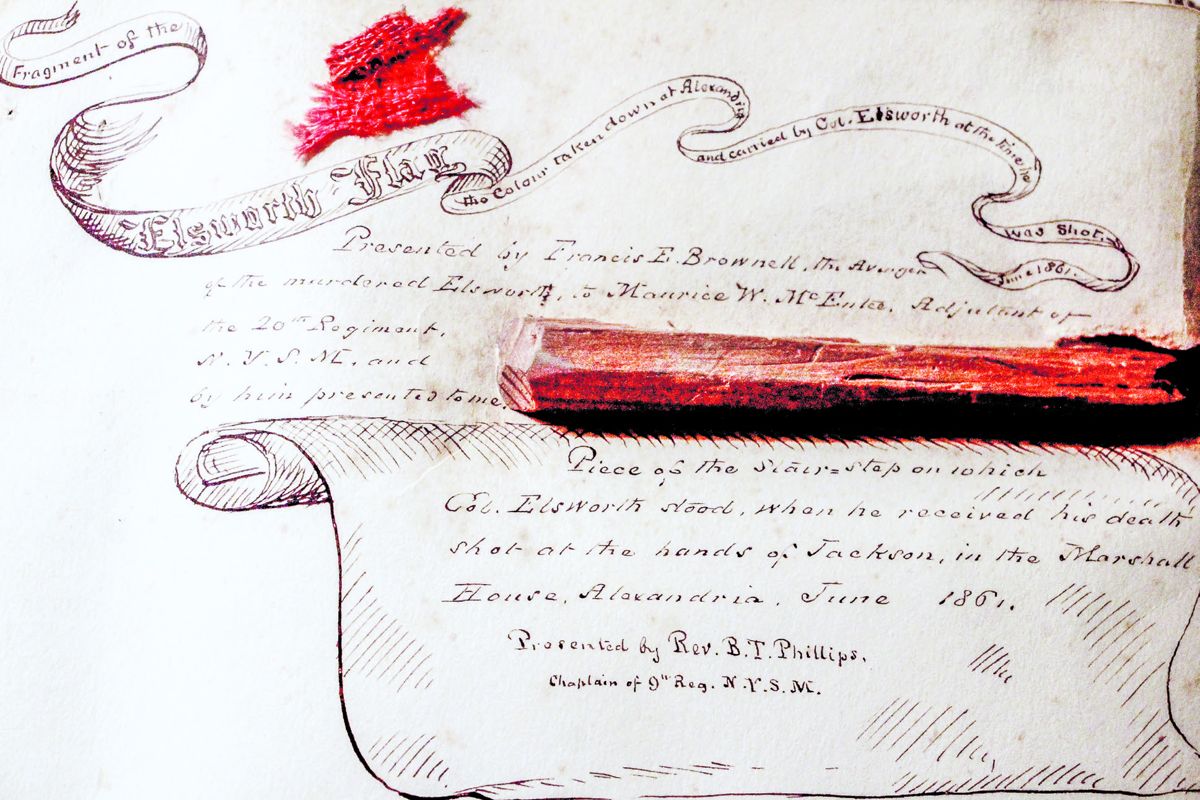 Fragment of the
Elsworth Flag,
the Colour taken down at Alexandria
and carried by Col. Elsworth at the time he
was Shot.
June 1861.
Presented by Francis E. Brownell, the Avenger
of the murdered Elsworth, to Maurice W. McEntee, Adjutant of
the 20th Regiment,
N.Y.S.M, and
by him presented to me.
Piece of the stair=step on which
Col. Elsworth stood, when he received his death
shot at the hands of Jackson, in the Marshall
House, Alexandria, June 1861.
Presented by Rev. B.T. Phillips,
Chaplain of 9th Reg. N.Y.S.M.